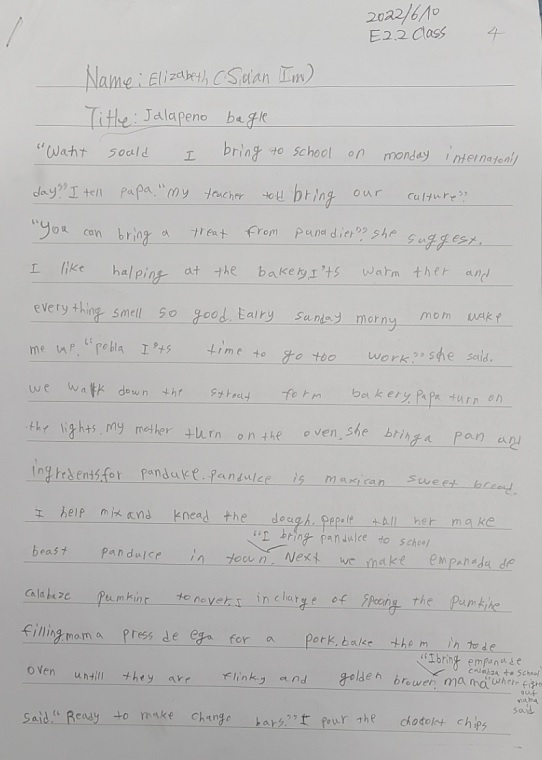 2022/6/10
E2.2 Class
4
Name: Elizabeth (Sian Im)
Title: Jalapeno bagle
"Waht sould I bring to school on monday internatonil
day?" I tell papa. "my teacher told bring our culture".
"You can bring a treat from panadier". she suggest.
I like halping at the bakery. I'ts warm ther and
everything smell so good. Ealry sunday morny mom wake
me up. "pobla I'ts time to go too work." she said.
we walk down the streat form bakery. Papa turn on
the lights. my mother turn on the oven. she bring a pan and
ingredents. for panduke. pandulce is maxican sweet bread.
I help mix and knead the doagh. pepole tall her make
"I bring pandulce to school
beast pandulce in town. Next we make empanada de
calabaze pumking tonovers in clarge of spooing the pumkike
filling. mama press de ega for a pork. bake them in tode
"I bring empanade
calabaza to school
oven untill they are flinky and golden brower. mama "wher figre
out
maha
said
said. "Ready to make chango bars." I pour the chocolat chips